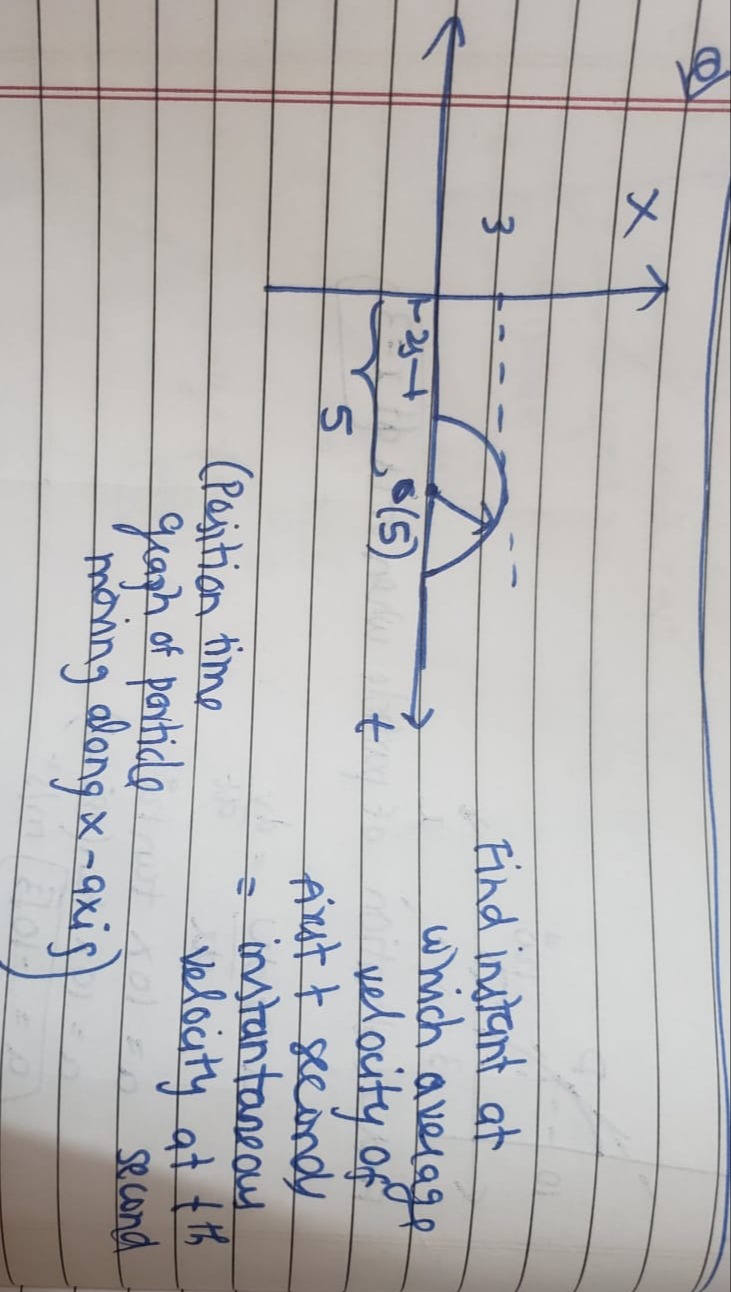 Q
X
3
2s
5
0(5)
t
(Position time
graph of particle
moving along x-axis)
Find instant at
which average
velocity of
first t seconds
= instantaneous
velocity at tth
second